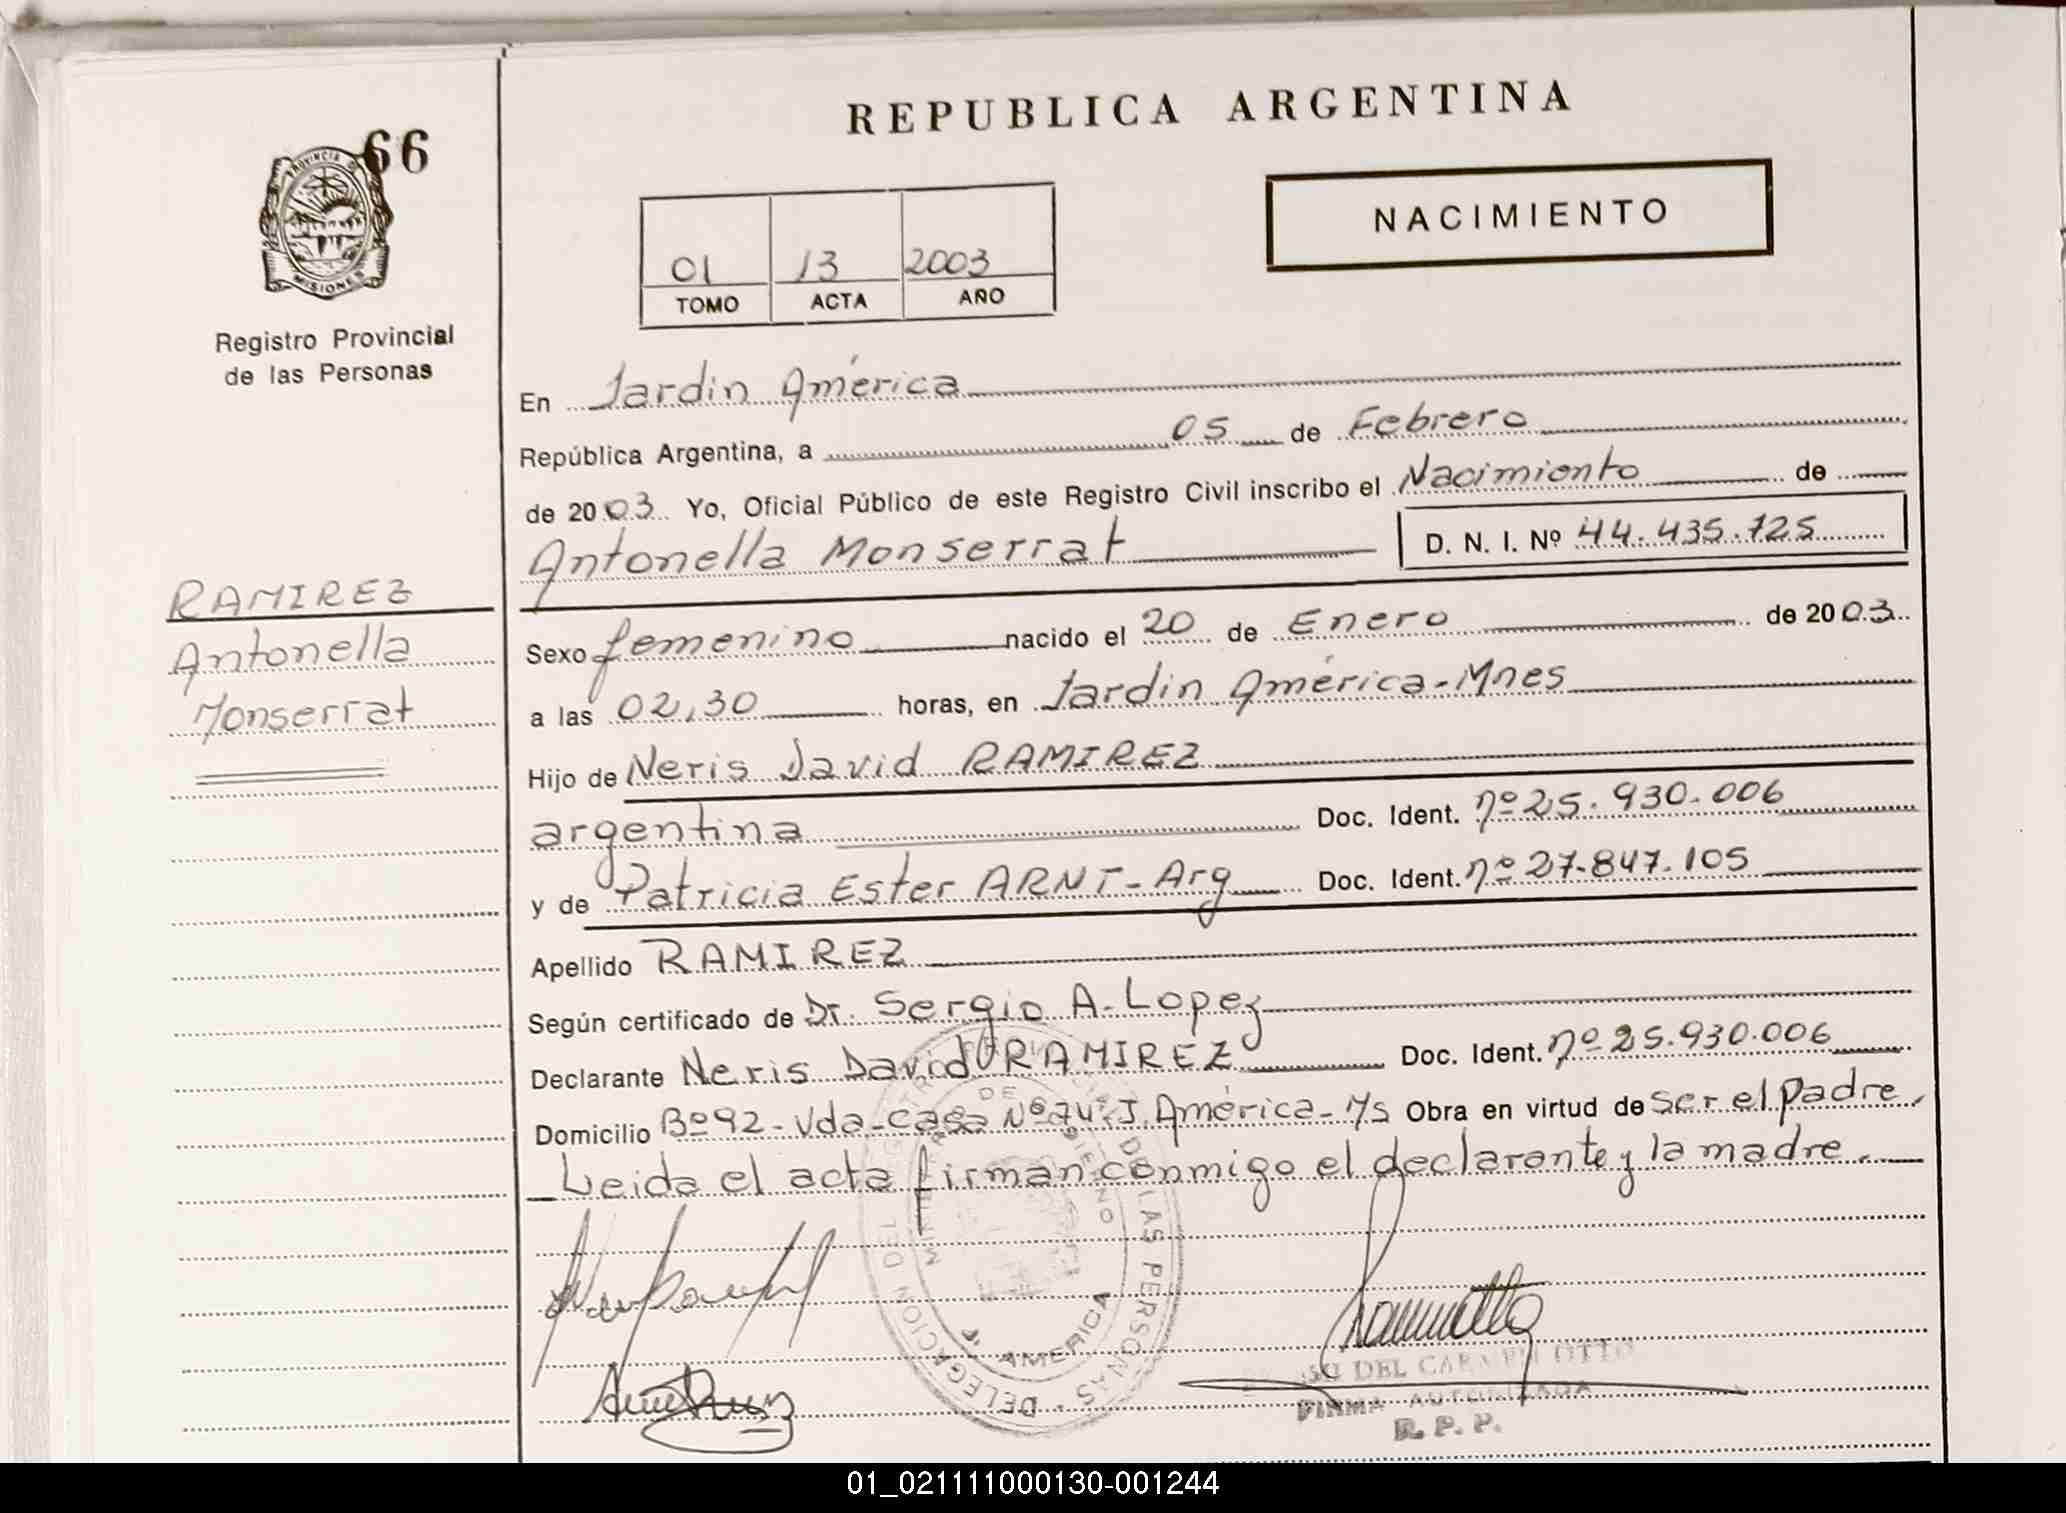 REPUBLICA ARGENTINA
66
PROVINCIA DE
MISIONES
NACIMIENTO
01 13 2003
TOMO ACTA AÑO
Registro Provincial
de las Personas
En Jardin América
República Argentina, a 05 de Febrero
de 2003 Yo, Oficial Público de este Registro Civil inscribo el Nacimiento de
Antonella Monserrat D. N. I. Nº 44.435.725
RAMIREZ
Antonella
Monserrat
Sexo femenino nacido el 20 de Enero de 2003
a las 02,30 horas, en Jardin América-Mnes
Hijo de Neris David RAMIREZ
argentina Doc. Ident. nº 25.930.006
y de Patricia Ester ARNT - Arg Doc. Ident. nº 27.847.105
Apellido RAMIREZ
Según certificado de Dr. Sergio A. Lopez
Declarante Neris David RAMIREZ Doc. Ident. nº 25.930.006
Domicilio Bº 92 - Vda - Casa Nº 74 - J. América - Ms Obra en virtud de ser el padre,
Leida el acta firman conmigo el declarante y la madre.
DELEGACION DEL DE LAS PERSONAS
J. AMERICA
DEL CARMEN OTTO
FIRMA AUTORIZADA
R. P. P.
01_021111000130-001244